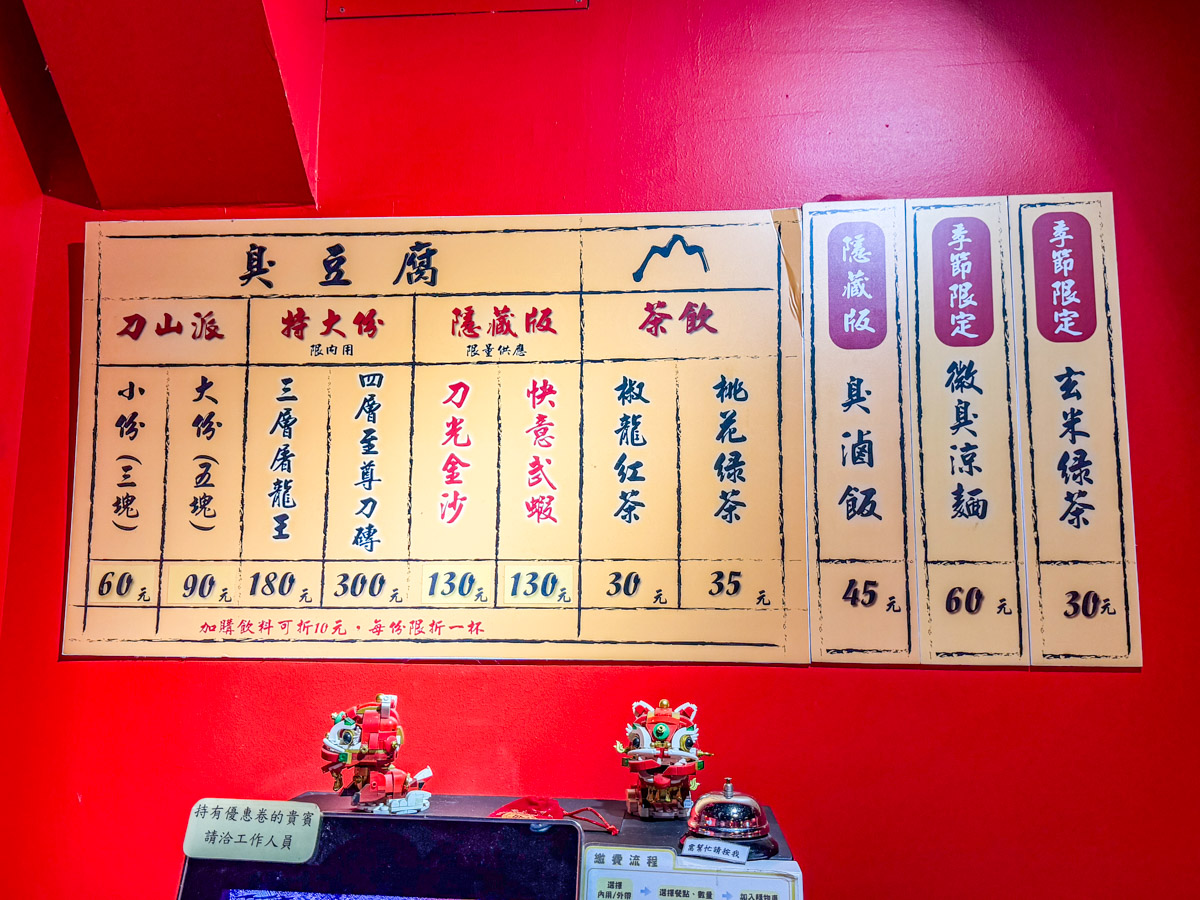 臭豆腐
刀山派
特大份
限內用
隱藏版
限量供應
茶飲
小份(三塊)
60元
大份(五塊)
90元
三層屠龍王
180元
四層至尊刀磚
300元
刀光金沙
130元
快意武蝦
130元
椒龍紅茶
30元
桃花绿茶
35元
加購飲料可折10元，每份限折一杯
隱藏版
臭滷飯
45元
季節限定
徽臭涼麵
60元
季節限定
玄米绿茶
30元
持有優惠卷的貴賓
請洽工作人員
需幫忙請按我
繳費流程
選擇
內用/外帶
選擇餐點、數量
加入購物車